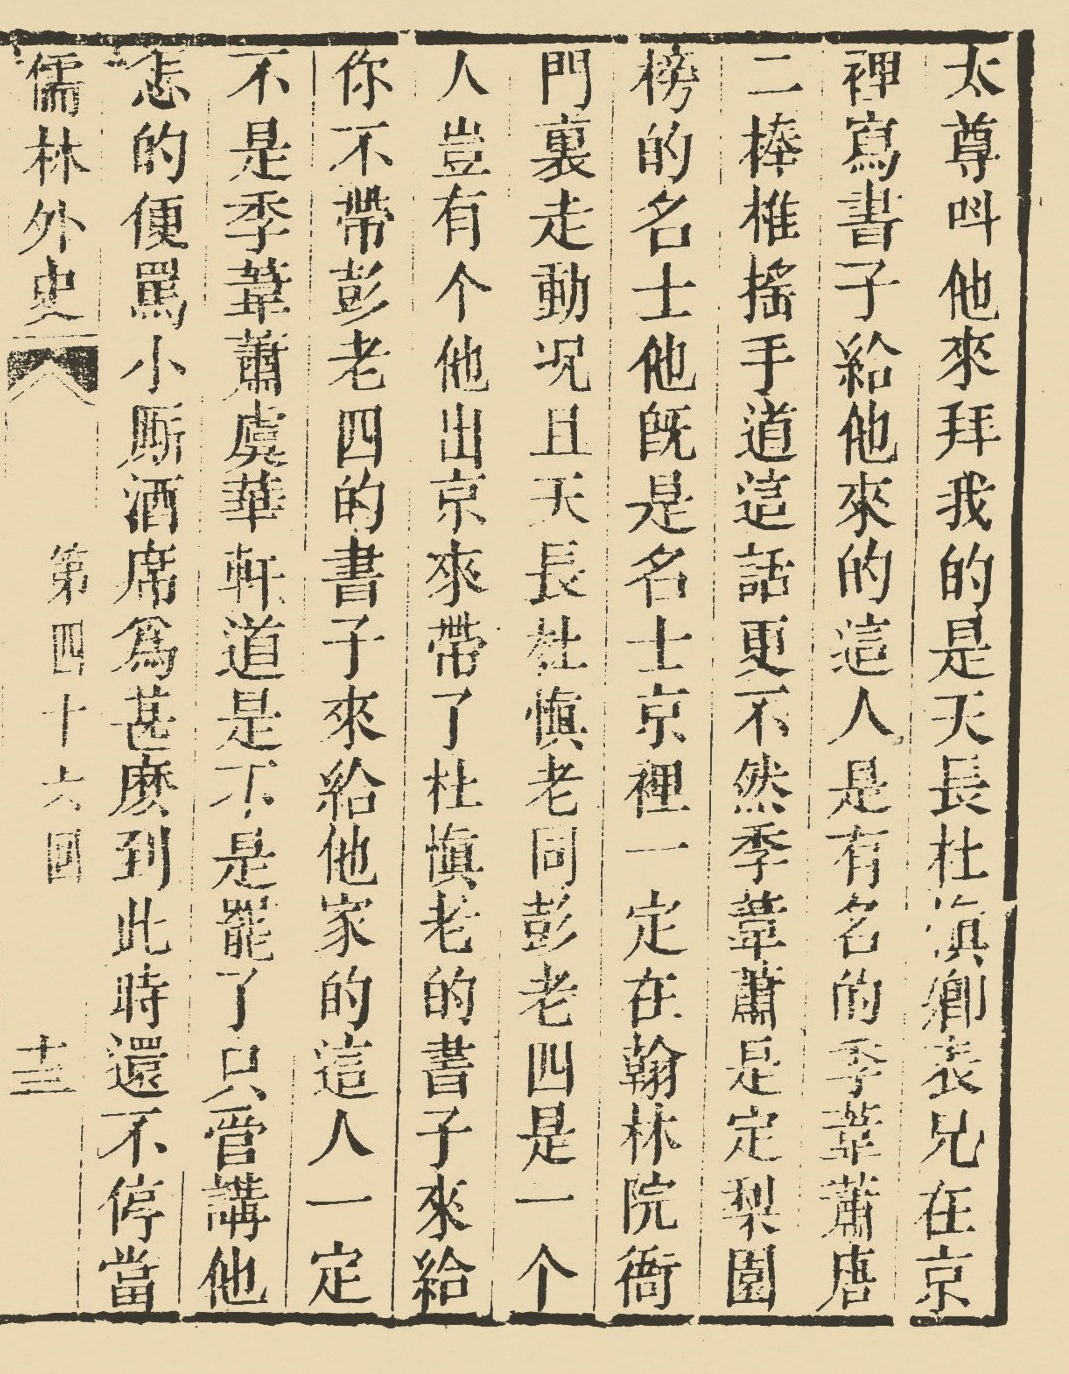 太尊呌他來拜我的是天長杜慎卿表兄在京
裡寫書子給他來的這人是有名的季葦蕭唐
二棒椎搖手道這話更不然季葦蕭是定梨園
榜的名士他既是名士京裡一定在翰林院衙
門裏走動况且天長杜愼老同彭老四是一个
人豈有个他出京來帶了杜愼老的書子來給
你不帶彭老四的書子來給他家的這人一定
不是季葦蕭虞華軒道是不是罷了只管講他
怎的便罵小厮酒席爲甚麽到此時還不停當
儒林外史 第四十六囬 十三